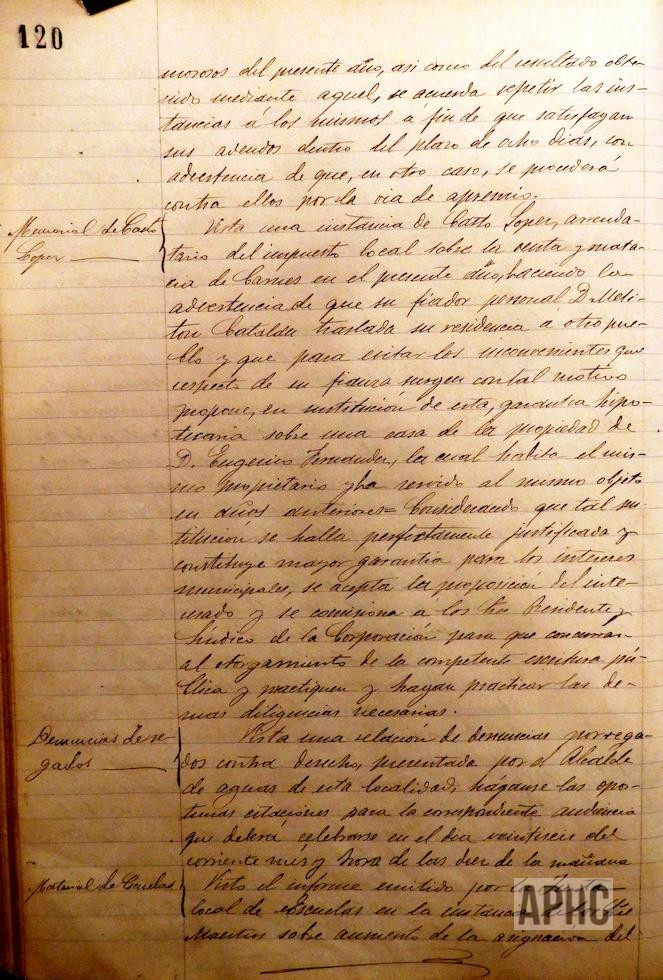 120
morosos del presente año, asi como del resultado obte-
nido mediante aquel, se acuerda repetir las ins-
tancias á los mismos á fin de que satisfagan
sus adeudos dentro del plazo de ocho dias, con
advertencia de que, en otro caso, se procederá
contra ellos por la via de apremio.
Memorial de Casto
Lopez
Vista una instancia de Casto Lopez, arrenda-
tario del impuesto local sobre la venta y matan-
cia de Carnes en el presente año, haciendo la
advertencia de que su fiador personal, D. Meli-
ton Catalán traslada su residencia a otro pue-
blo y que para evitar los inconvenientes que
respecto de su fianza surgen con tal motivo
propone, en sustitución de esta, garantia hipo-
tecaria sobre una casa de la propiedad de
D. Eugenio Fernandez, la cual habita el mis-
mo propietario y ha servido al mismo objeto
en años anteriores = Considerando que tal sus-
titución se halla perfectamente justificada y
constituye mayor garantia para los intereses
municipales, se acepta la proposición del inte-
resado y se comisiona a los Sres Presidente y
Síndico de la Corporación para que concurran
al otorgamiento de la competente escritura pú-
blica y practiquen y hagan practicar las de-
mas diligencias necesarias.
Denuncias de re-
gados
Vista una relación de denuncias por rega-
dos contra derecho, presentada por el Alcalde
de aguas de esta localidad, háganse las opor-
tunas citaciones para la correspondiente audiencia
que deberá celebrarse en el dia veintiseis del
corriente mes y hora de las diez de la mañana
Material de Escuelas
Visto el informe emitido por la
local de escuelas en la instancia de
Maestros sobre aumento de la asignación del
APHC